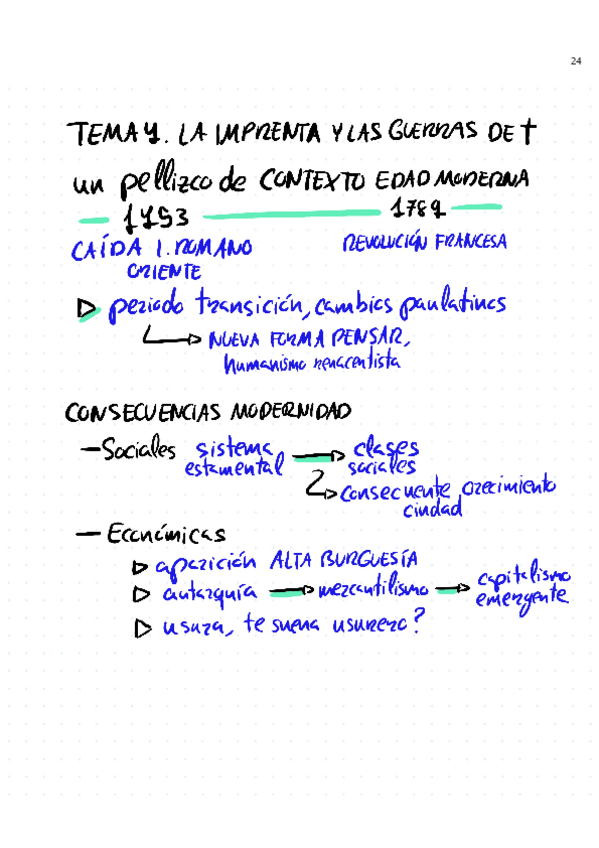 24
TEMA 4. LA IMPRENTA Y LAS GUERRAS DE †
un pellizco de CONTEXTO EDAD MODERNA
1453 1789
CAÍDA I. ROMANO REVOLUCIÓN FRANCESA
ORIENTE
periodo transición, cambios paulatinos
NUEVA FORMA PENSAR,
humanismo renacentista
CONSECUENCIAS MODERNIDAD
- Sociales sistema → clases
estamental sociales
consecuente crecimiento
ciudad
- Económicas
aparición ALTA BURGUESÍA
autarquía → mercantilismo → capitalismo
emergente
usura, te suena usurero?